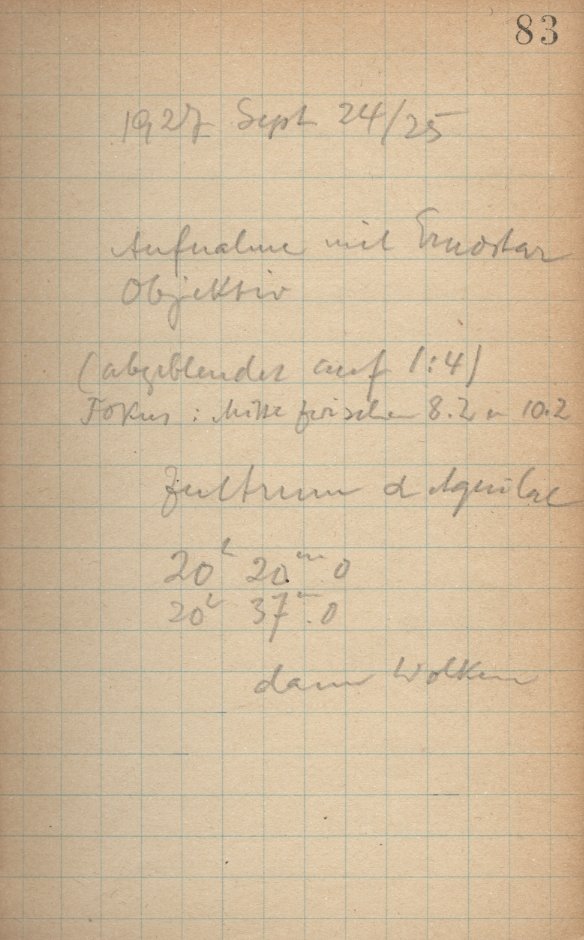 83
1927 Sept 24/25
Aufnahme mit Ernostar
Objektiv
(abgeblendet auf 1:4)
Fokus: Mitte zwischen 8.2 u 10.2
Zentrum α Aquilae
20ʰ 20ᵐ.0
20ʰ 37ᵐ.0
dann Wolken